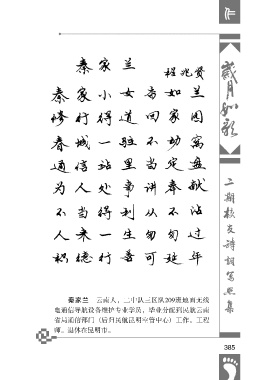 秦家兰
程兆贵
秦家小女吉如兰
修行得道回家园
春城一驻不动窝
通信站里当定盘
为人处事讲奉献
不当得利从不沾
人来一生匆匆过
积德行善可延年
秦家兰 云南人，二中队三区队209班地面无线
电通信导航设备维护专业学员，毕业分配到民航云南
省局通信部门（后归民航昆明空管中心）工作，工程
师。退休在昆明市。
岁月如歌
二期校友诗词写照集
385